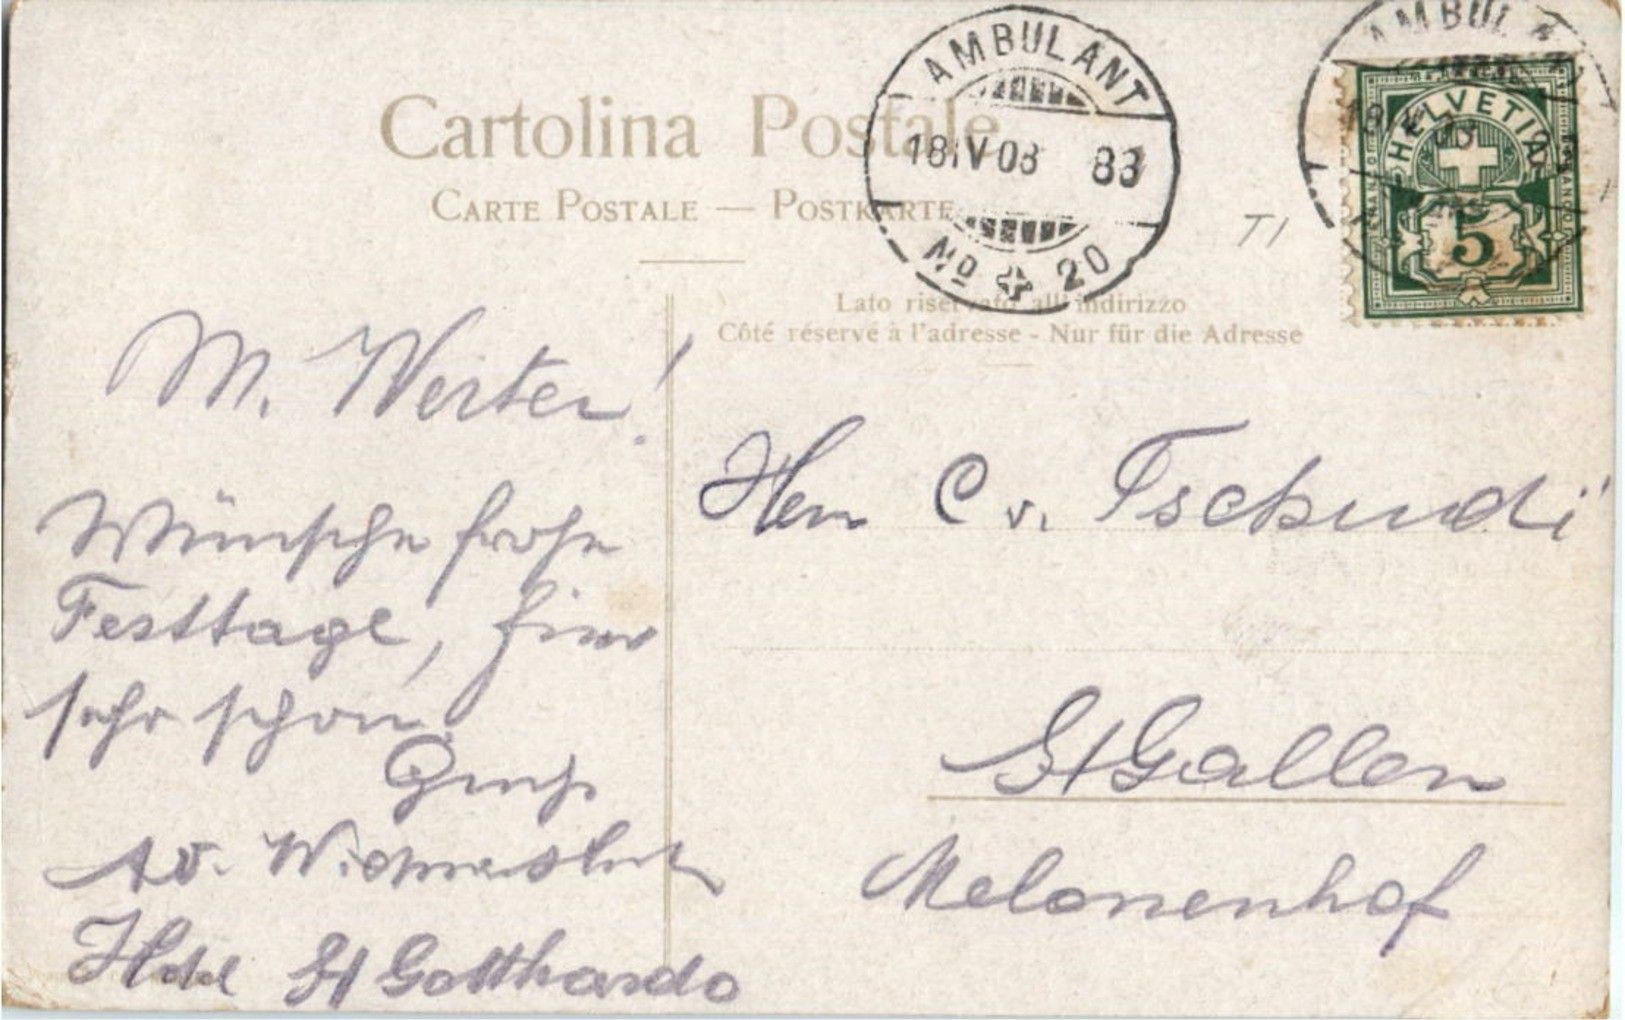 Cartolina Postale
CARTE POSTALE — POSTKARTE
Lato riservato all'indirizzo
Côté réservé à l'adresse - Nur für die Adresse
AMBULANT
18 IV 08 83
No 20
AMBULANT
18
HELVETIA
FRANCO
5
TI
M. Werter!
Wünsche frohe
Festtage, hier
sehr schön.
Gruß
Hotel St Gotthardo
Herr C v. Tschudi
St Gallen
Melonenhof